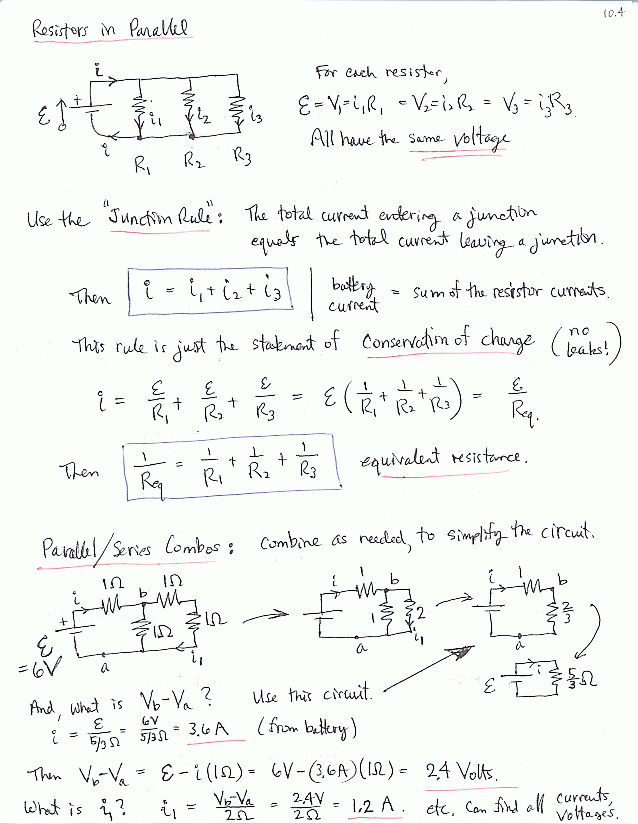 10.4
Resistors in Parallel
i
+
ℰ
i
i₁ i₂ i₃
R₁ R₂ R₃
For each resistor,
ℰ = V₁ = i₁R₁ = V₂ = i₂R₂ = V₃ = i₃R₃.
All have the same voltage
Use the "Junction Rule": The total current entering a junction
equals the total current leaving a junction.
Then i = i₁ + i₂ + i₃ | battery current = sum of the resistor currents.
This rule is just the statement of conservation of charge (no leaks!)
i = ℰ/R₁ + ℰ/R₂ + ℰ/R₃ = ℰ (1/R₁ + 1/R₂ + 1/R₃) = ℰ/Req.
Then 1/Req = 1/R₁ + 1/R₂ + 1/R₃ equivalent resistance.
Parallel/Series Combos: Combine as needed, to simplify the circuit.
i 1Ω b 1Ω
+
1Ω 1Ω
ℰ = 6V
a i₁
i 1 b
1 2
a i₁
i 1 b
2/3
a
ℰ i 5/3 Ω
And, what is Vb-Va? Use this circuit.
i = ℰ/(5/3 Ω) = 6V/(5/3 Ω) = 3.6 A (from battery)
Then Vb-Va = ℰ - i(1Ω) = 6V - (3.6A)(1Ω) = 2.4 Volts.
What is i₁? i₁ = (Vb-Va)/2Ω = 2.4V/2Ω = 1.2 A. etc. Can find all currents, voltages.